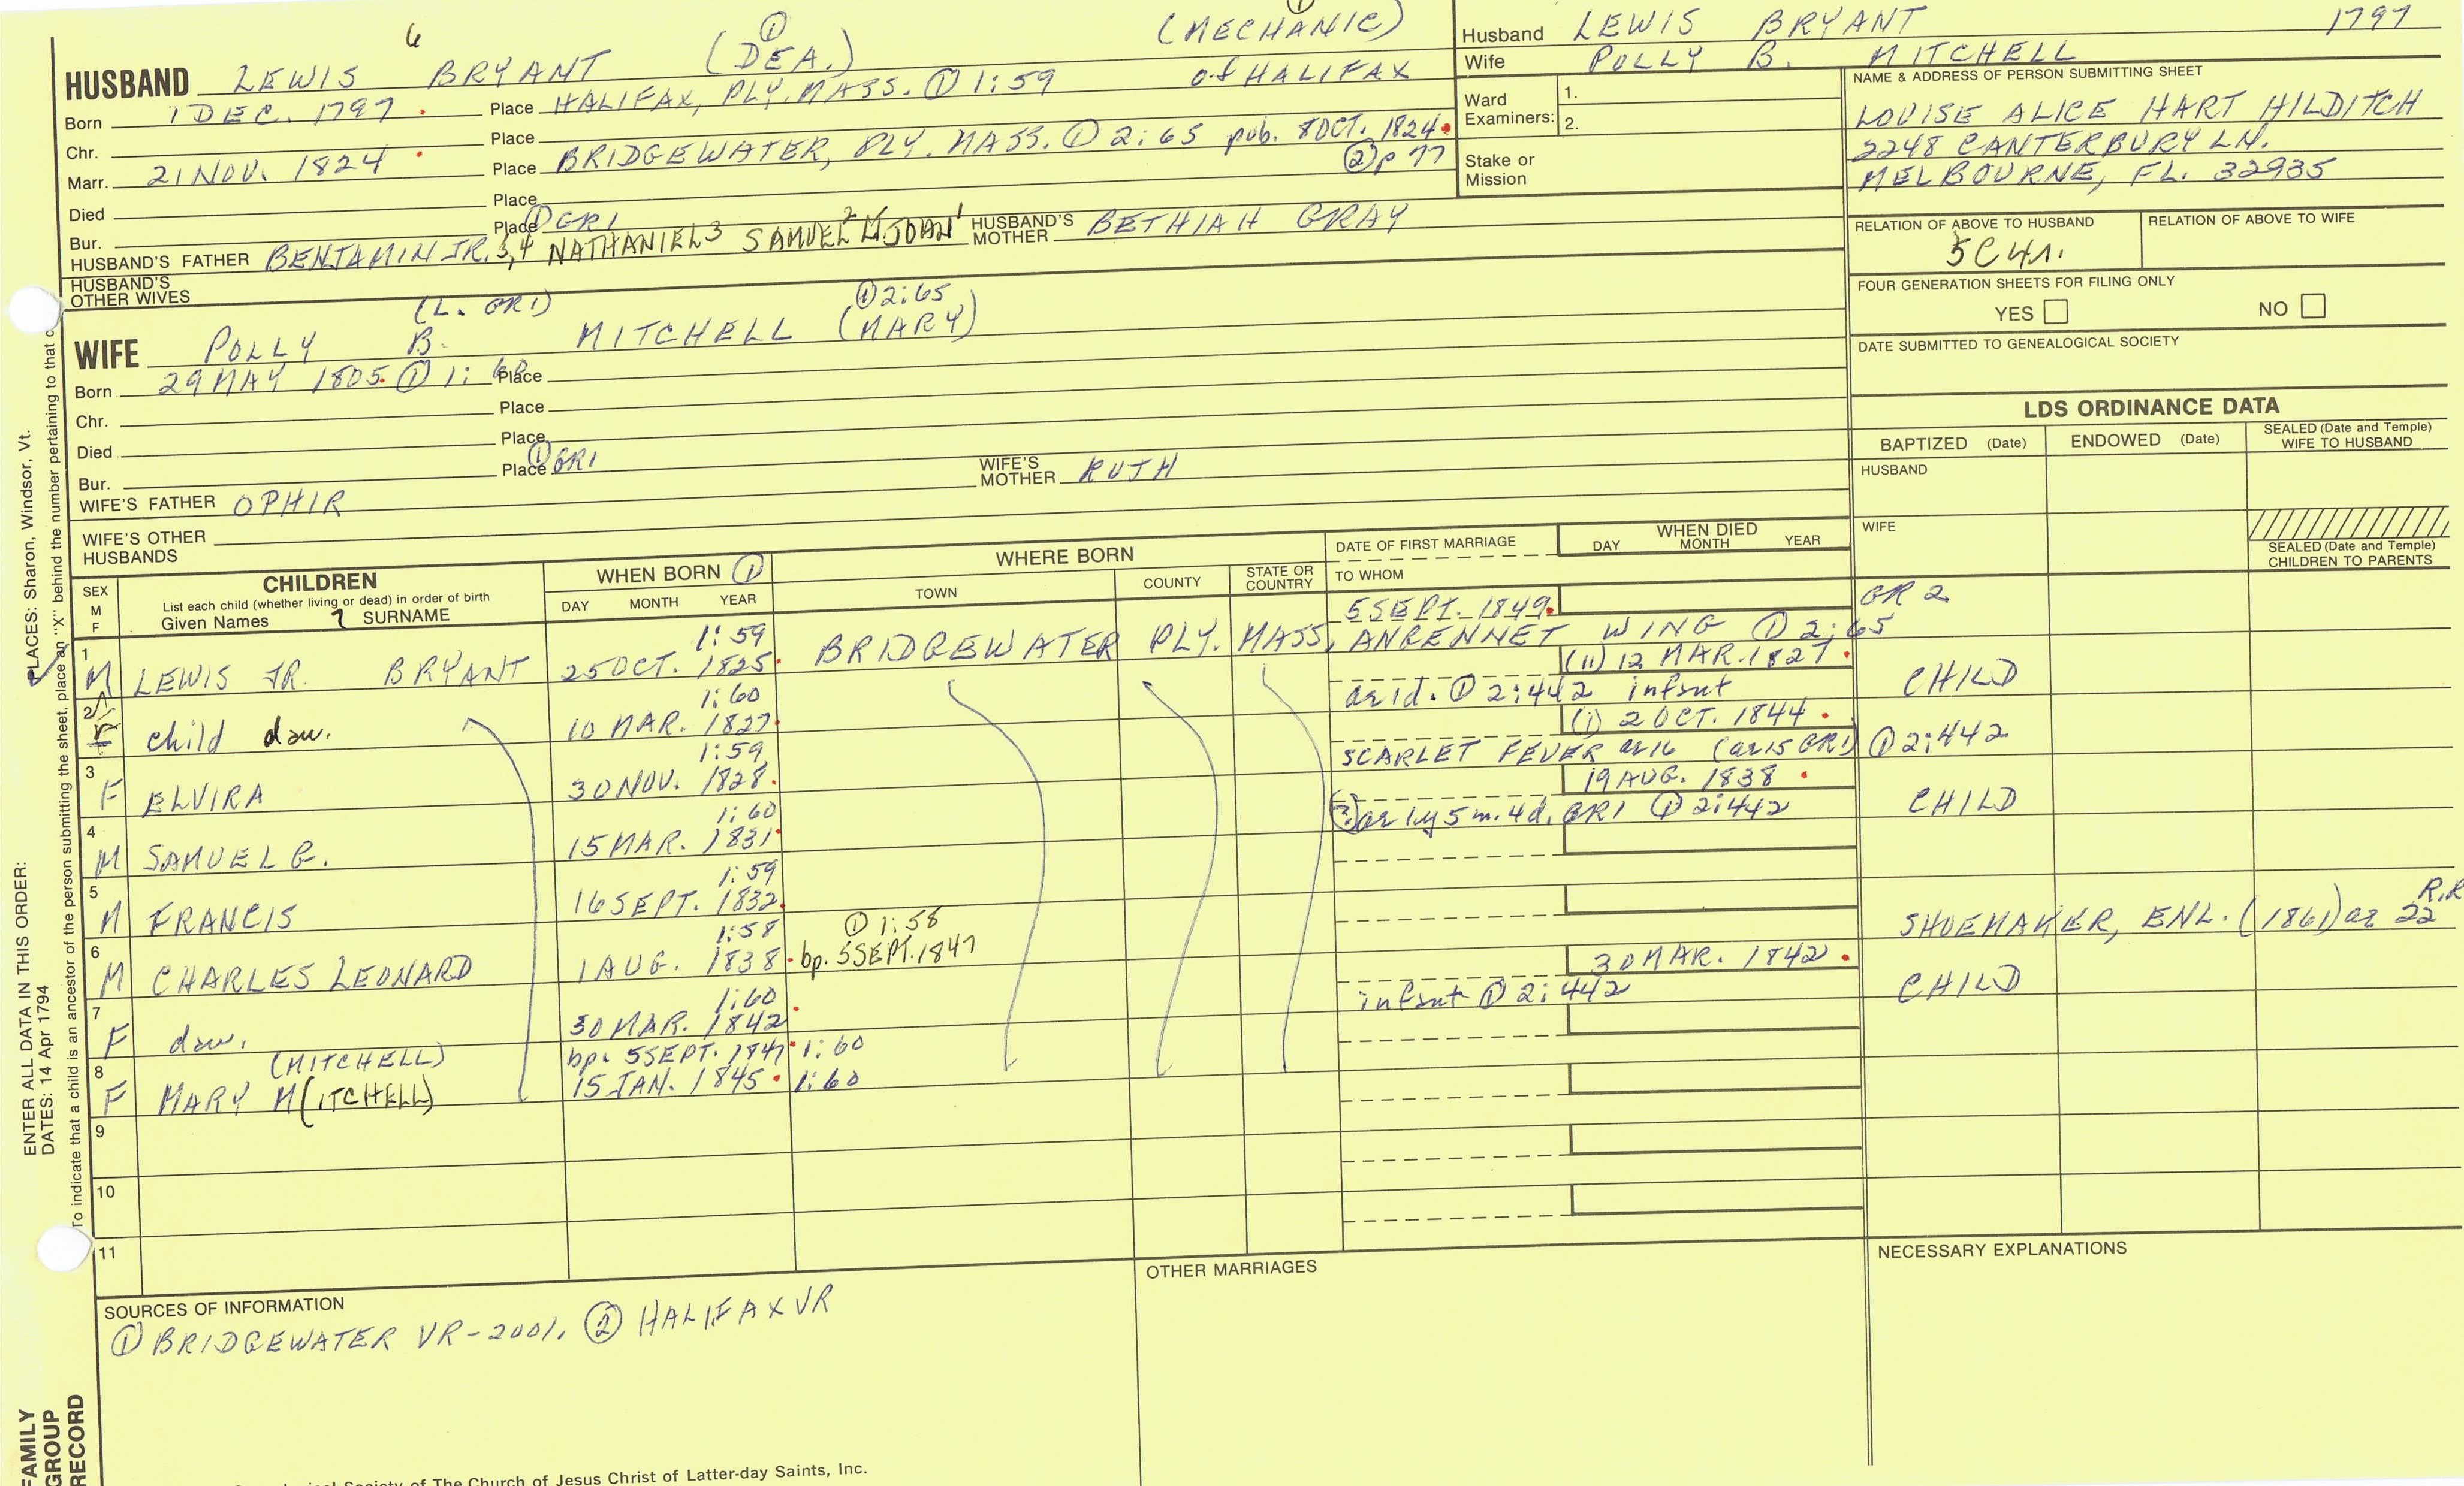 6 ① (MECHANIC) ①
HUSBAND LEWIS BRYANT (DEA.) of HALIFAX
Born 1 DEC. 1797. Place HALIFAX, PLY. MASS. ① 1:59
Chr. Place
Marr. 21 NOV. 1824. Place BRIDGEWATER, PLY. MASS. ① 2:65 pub. 8 OCT. 1824.
② p 77
Died Place
Bur. Place ① GR1
HUSBAND'S FATHER BENJAMIN JR. NATHANIEL 3 SAMUEL 2 JOHN 1 HUSBAND'S MOTHER BETHIAH GRAY
HUSBAND'S OTHER WIVES
(L. GR1) ① 2:65
WIFE POLLY B. MITCHELL (MARY)
Born 29 MAY 1805. ① 1: Place
Chr. Place
Died Place
Bur. Place ① GR1
WIFE'S FATHER OPHIR WIFE'S MOTHER RUTH
WIFE'S OTHER HUSBANDS
Husband LEWIS BRYANT 1797
Wife POLLY B. MITCHELL
Ward Examiners: 1.
2.
Stake or Mission
NAME & ADDRESS OF PERSON SUBMITTING SHEET
LOUISE ALICE HART HILDITCH
2248 CANTERBURY LN.
MELBOURNE, FL. 32935
RELATION OF ABOVE TO HUSBAND RELATION OF ABOVE TO WIFE
5C4r.
FOUR GENERATION SHEETS FOR FILING ONLY
YES NO
DATE SUBMITTED TO GENEALOGICAL SOCIETY
LDS ORDINANCE DATA
BAPTIZED (Date) ENDOWED (Date) SEALED (Date and Temple) WIFE TO HUSBAND
HUSBAND
WIFE
SEALED (Date and Temple) CHILDREN TO PARENTS
SEX M F
CHILDREN
List each child (whether living or dead) in order of birth
Given Names SURNAME
WHEN BORN ①
DAY MONTH YEAR
WHERE BORN
TOWN COUNTY STATE OR COUNTRY
DATE OF FIRST MARRIAGE
TO WHOM
WHEN DIED
DAY MONTH YEAR
1:59 5 SEPT. 1849. GR 2
1 M LEWIS JR. BRYANT 25 OCT. 1825. BRIDGEWATER PLY. MASS. ANRENNET WING ① 2:65
1:60 (11) 12 MAR. 1827.
2 F child dau. 10 MAR. 1827. ae 1d. ① 2:442 infant CHILD
1:59 (1) 2 OCT. 1844.
3 F ELVIRA 30 NOV. 1828. SCARLET FEVER ae 16 (ae 15 GR1) ① 2:442
1:60 19 AUG. 1838.
4 M SAMUEL G. 15 MAR. 1831. ae 1y 5m. 4d. GR1 ① 2:442 CHILD
1:59
5 M FRANCIS 16 SEPT. 1832.
1:58 ① 1:58
6 M CHARLES LEONARD 1 AUG. 1838. bp. 5 SEPT. 1847 SHOEMAKER, ENL. (1861) ae 22 R.R
1:60 30 MAR. 1842.
7 F dau. 30 MAR. 1842. infant ① 2:442 CHILD
(MITCHELL) bp. 5 SEPT. 1847. 1:60
8 F MARY M(ITCHELL) 15 JAN. 1845. 1:60
9
10
11
SOURCES OF INFORMATION
① BRIDGEWATER VR-2001. ② HALIFAX VR
OTHER MARRIAGES
NECESSARY EXPLANATIONS
Society of The Church of Jesus Christ of Latter-day Saints, Inc.
PLACES: Sharon, Windsor, Vt.
ENTER ALL DATA IN THIS ORDER:
DATES: 14 Apr 1794
To indicate that a child is an ancestor of the person submitting the sheet, place an "X" behind the number pertaining to that
FAMILY GROUP RECORD